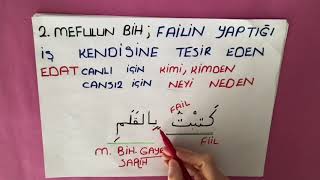 2. MEFULUN BİH; FAİLİN YAPTIĞI
İŞ KENDİSİNE TESİR EDEN
EDAT CANLI İÇİN KİMİ, KİMDEN
CANSIZ İÇİN NEYİ NEDEN
FAİL
كَتَبْتُ بِالْقَلَمِ
FİİL
M. BİH. GAYR
SARİH